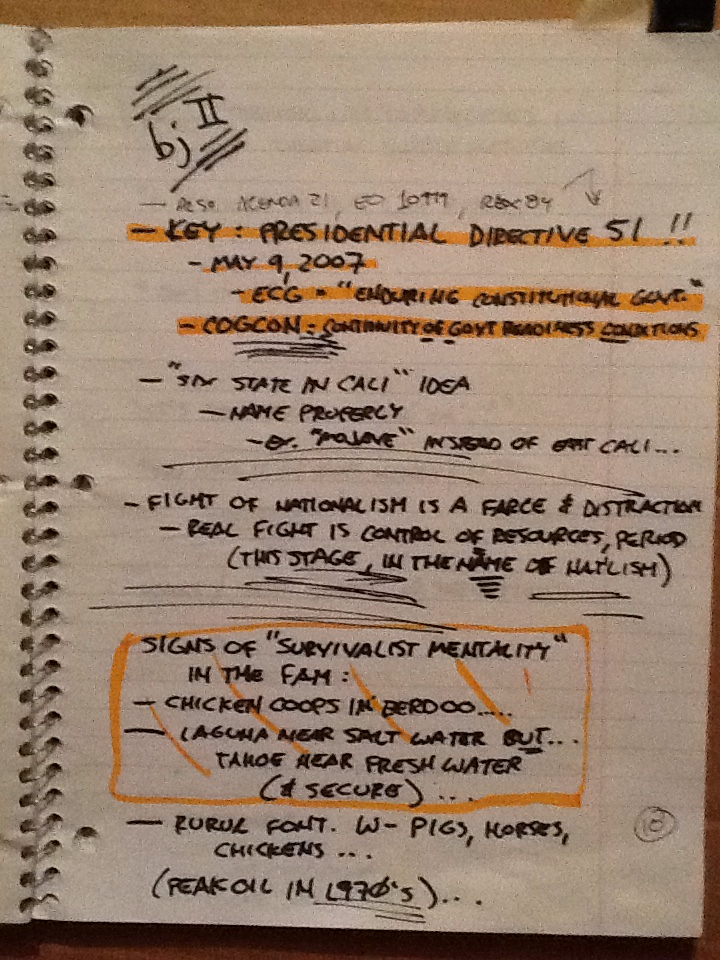 bj II
— ALSO, AGENDA 21, EO 10999, REX 84
— KEY: PRESIDENTIAL DIRECTIVE 51 !!
- MAY 9, 2007
- ECG = "ENDURING CONSTITUTIONAL GOVT."
- COGCON: CONTINUITY OF GOVT READINESS CONDITIONS
— "SIX STATE IN CALI" IDEA
— NAME PROPERLY
- EX. "MOJAVE" INSTEAD OF EAST CALI...
- FIGHT OF NATIONALISM IS A FARCE & DISTRACTION
- REAL FIGHT IS CONTROL OF RESOURCES, PERIOD
(THIS STAGE, IN THE NAME OF NAT'LISM)
SIGNS OF "SURVIVALIST MENTALITY"
IN THE FAM:
— CHICKEN COOPS IN BERDOO.....
— LAGUNA NEAR SALT WATER BUT...
TAHOE NEAR FRESH WATER
(& SECURE) ...
— RURUL FONT. W- PIGS, HORSES,
CHICKENS ...
(PEAK OIL IN 1970's)...
10